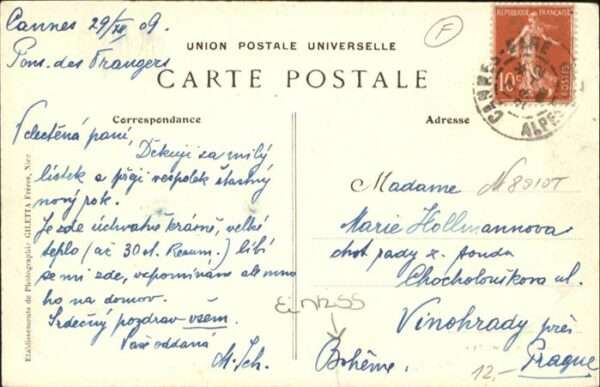 Cannes 29/XII 09.
Pens. des Étrangers
UNION POSTALE UNIVERSELLE
CARTE POSTALE
Correspondance
Velectěná paní,
Děkuji za milý
lístek a přeji vespolek šťastný
nový rok.
Je zde úchvatně krásně, velké
teplo (až 30 st. Reaum.) líbí
se mi zde, vzpomínám ale mno
ho na domov.
Srdečný pozdrav všem.
Vaše oddaná
M. Sch.
Etablissements de Photographie GILETTA Frères, Nice
F
REPUBLIQUE FRANÇAISE
10c
POSTES
CANNES-GARE
ALPES
Adresse
Madame
Marie Hollmannova
chot rady z. soudu
Chocholouškova ul.
Vinohrady près
Prague
Bohême.
12,-